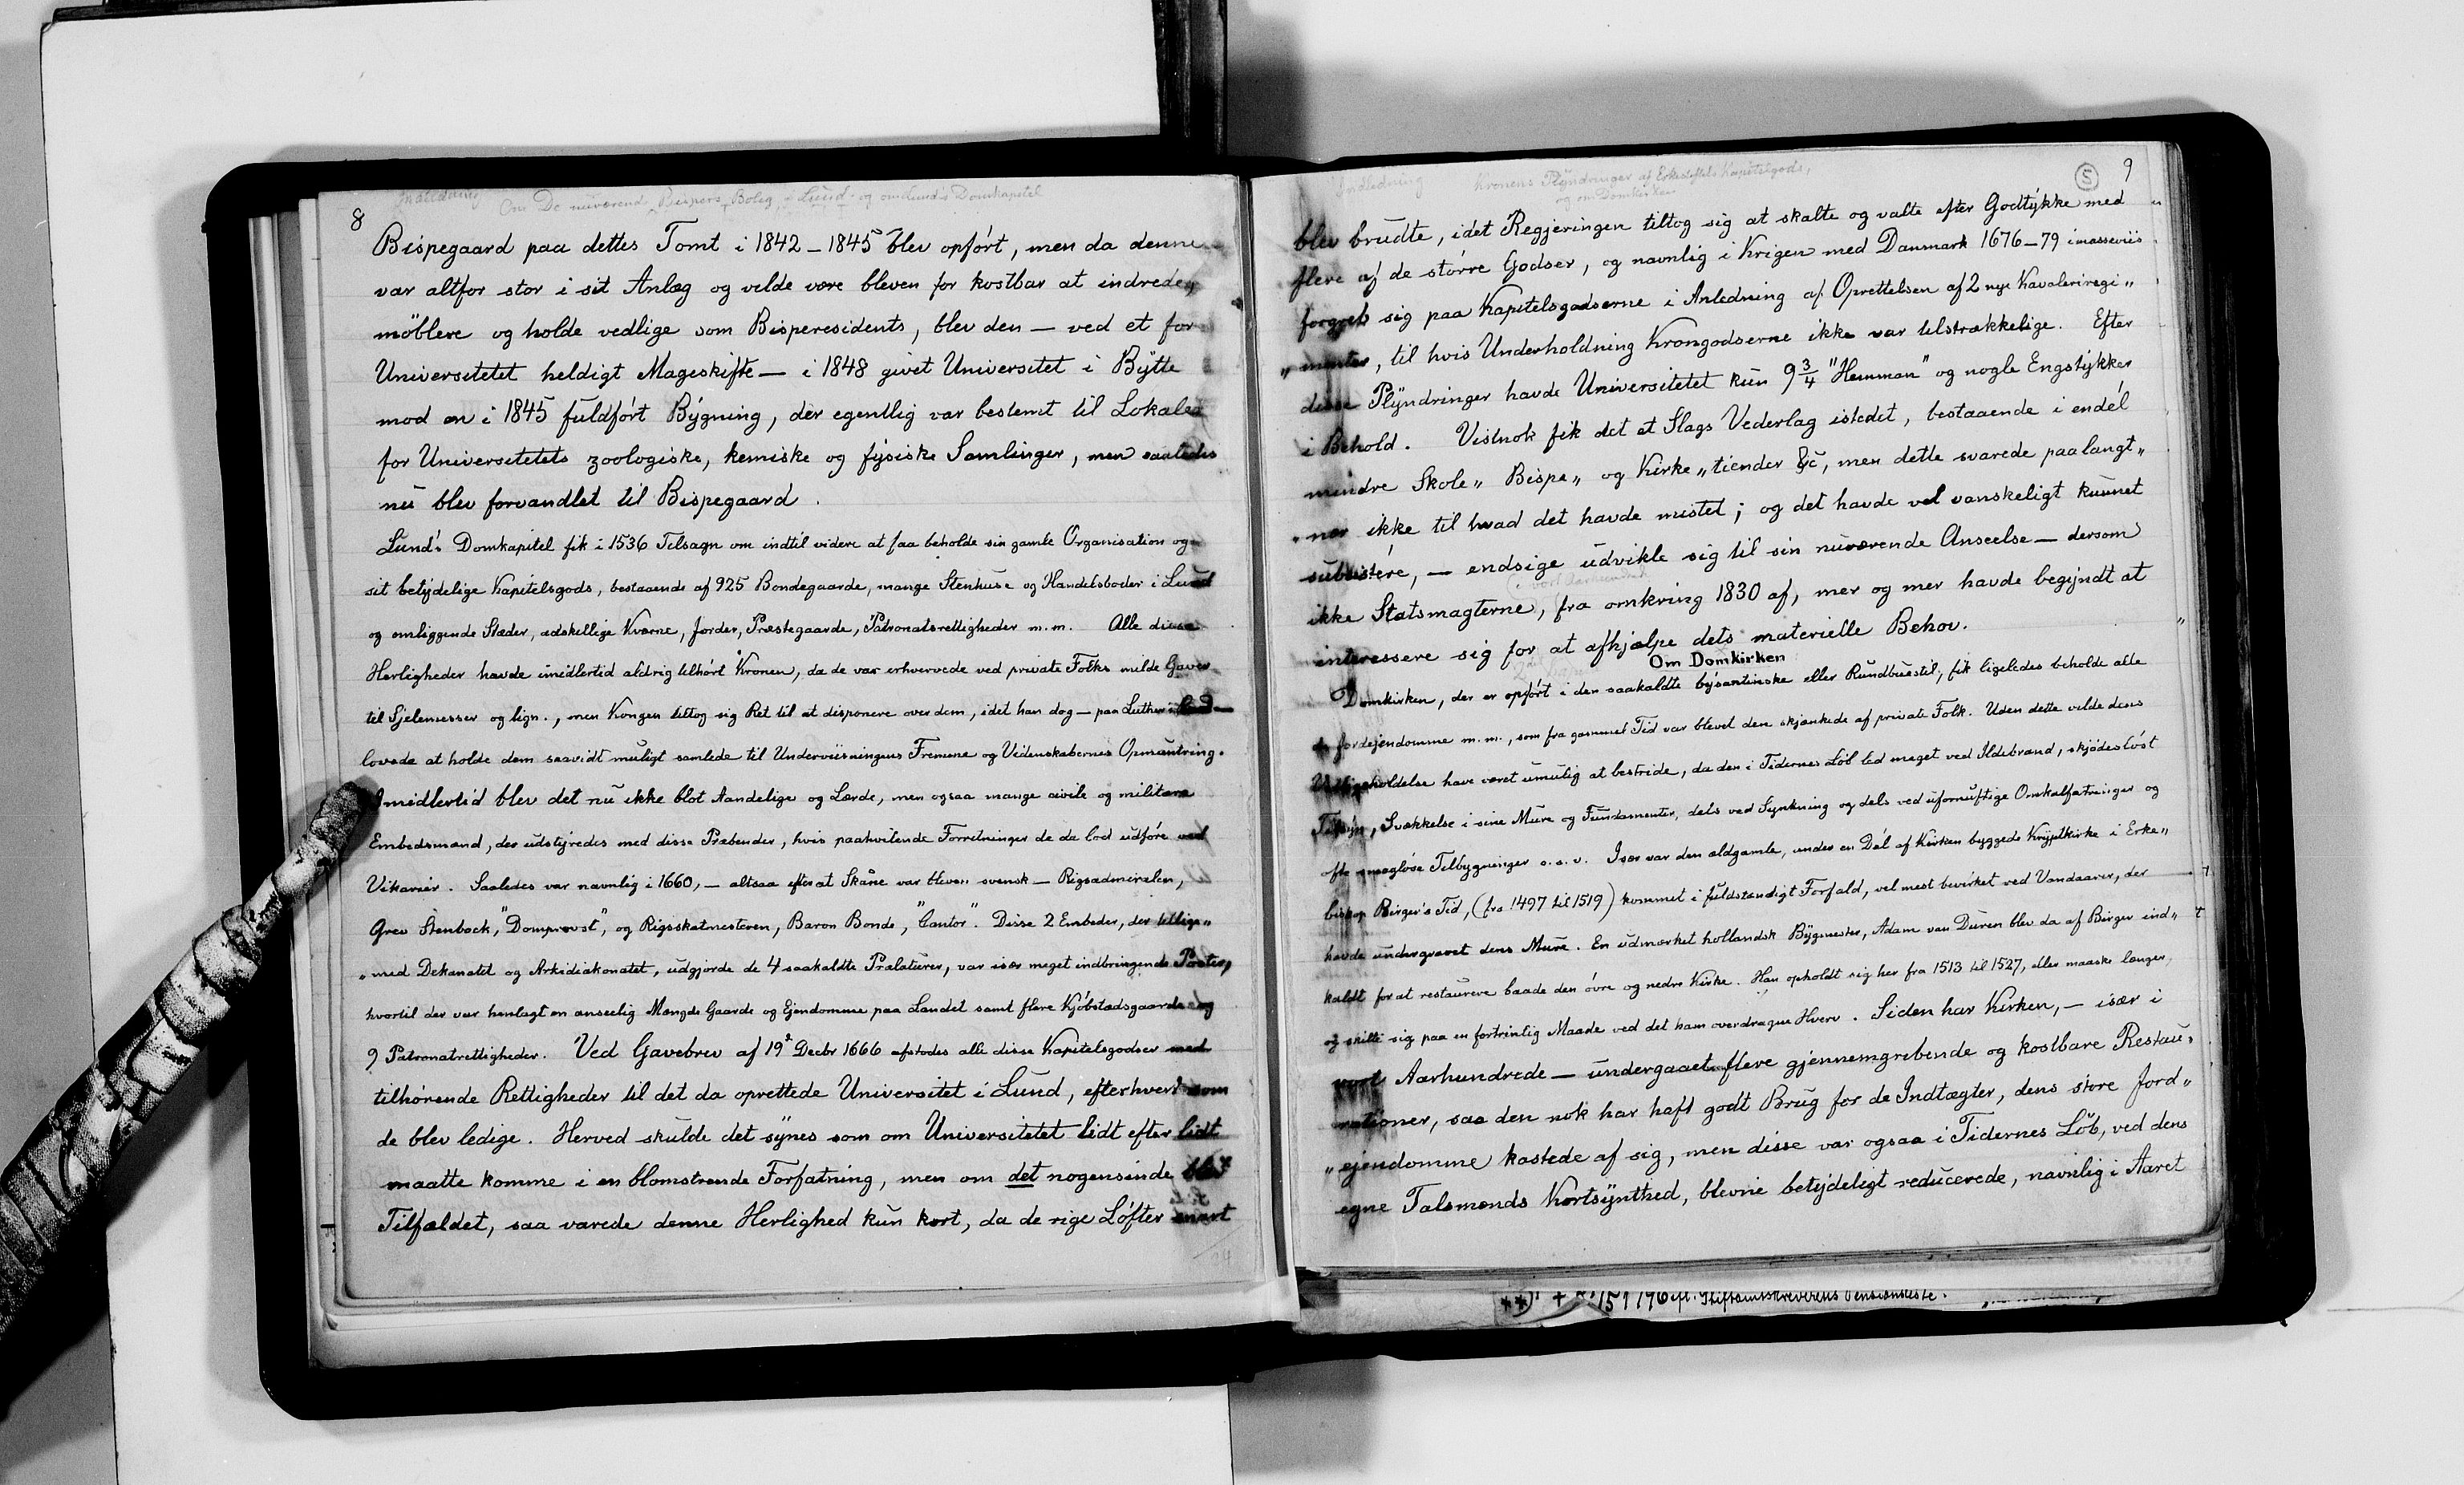 Indledning Om De nuværende Bispers Bolig i Lund og om Lund's Domkapitel
8
Bispegaard paa dettes Tomt i 1842–1845 blev opført, men da denne
var altfor stor i sit Anlæg og vilde være bleven for kostbar at indrede,,
möblere og holde vedlige som Bisperesidents, blev den — ved et for
Universitetet heldigt Mageskifte — i 1848 givet Universitet i Bytte
mod en i 1845 fuldført Bygning, der egentlig var bestemt til Lokaler
for Universitetets zoologiske, kemiske og fysiske Samlinger, men saaledes
nu blev forvandlet til Bispegaard.
Lund's Domkapitel fik i 1536 Tilsagn om indtil videre at faa beholde sin gamle Organisation og
sit betydelige Kapitelsgods, bestaaende af 925 Bondegaarde, mange Stenhuse og Handelsboder i Lund
og omliggende Stæder, adskellige Kværne, Jorder, Præstegaarde, Patronatsrettigheder m.m. Alle disse
Herligheder havde imidlertid aldrig tilhørt Kronen, da de var erhvervede ved private Folks milde Gaver
til Sjelemesser og lign., men Kongen tiltog sig Ret til at disponere over dem, idet han dog — paa Luther's
lovede at holde dem saavidt muligt samlede til Underviisningens Fremme og Videnskabernes Opmuntring.
Imidlertid blev det nu ikke blot Aandelige og Lærde, men ogsaa mange civile og militære
Embedsmænd, der udstyredes med disse Præbender, hvis paahvilende Forretninger de da lod udføre ved
Vikarier. Saaledes var navnlig i 1660, — altsaa efter at Skåne var bleven svensk — Rigsadmiralen,
Grev Stenbock, "Domprovst", og Rigsskatmesteren, Baron Bonde, "Cantor". Disse 2 Embeder, der tillige,,
,,med Dekanatet og Arkidiakonatet, udgjorde de 4 saakaldte Prælaturer, var især meget indbringende Poster,
hvortil der var henlagt en anseelig Mængde Gaarde og Ejendomme paa Landet samt flere Kjøbstadsgaarde og
9 Patronatrettigheder. Ved Gavebrev af 19de Decbr 1666 afstodes alle disse Kapitelsgodser med
tilhørende Rettigheder til det da oprettede Universitet i Lund, efterhvert som
de blev ledige. Herved skulde det synes som om Universitetet lidt efter lidt
maatte komme i en blomstrende Forfatning, men om det nogensinde blev
Tilfældet, saa varede denne Herlighed kun kort, da de rige Løfter snart
Indledning Kronens Plyndringer af Erkestiftets Kapitelgods,
og om Domkirken
5 9
blev brudte, idet Regjeringen tiltog sig at skalte og valte efter Godtykke med
flere af de større Godser, og navnlig i Krigen med Danmark 1676–79 i masseviis
forgreb sig paa Kapitelsgodserne i Anledning af Oprettelsen af 2 nye Kavaleriregi,,
,,menter, til hvis Underholdning Krongodserne ikke var tilstrækkelige. Efter
disse Plyndringer havde Universitetet kun 9 3/4 "Hemman" og nogle Engstykker
i Behold. Vistnok fik det et Slags Vederlag istedet, bestaaende i endél
mindre Skole,, Bispe,, og Kirke,,tiender &c, men dette svarede paa langt,,
,,nær ikke til hvad det havde mistet; og det havde vel vanskeligt kunnet
subsistére, — endsige udvikle sig til sin nuværende Anseelse — dersom
i vort Aarhundrede
ikke Statsmagterne, fra omkring 1830 af, mer og mer havde begyndt at
interessere sig for at afhjælpe dets materielle Behov.
Om Domkirken
Domkirken, der er opført i den saakaldte bysantinske eller Rundbuestil, fik ligeledes beholde alle
de Jordejendomme m.m., som fra gammel Tid var blevet den skjænkede af private Folk. Uden dette vilde dens
Vedligeholdelse have været umulig at bestride, da den i Tidernes Löb led meget ved Ildebrand, skjødesløst
Tilsyn, Svækkelse i sine Mure og Fundamenter, dels ved Synkning og dels ved ufornuftige Omkalfatringer og
ofte smagløse Tilbygninger o.s.v. Især var den ældgamle, under en Dél af Kirken byggede Kryptkirke i Erke,,
biskop Birger's Tid, (fra 1497 til 1519) kommet i fuldstændigt Forfald, vel mest bevirket ved Vandaarer, der
havde undergravet dens Mure. En udmærket hollandsk Bygmester, Adam van Düren blev da af Birger ind,,
kaldt for at restaurere baade den övre og nedre Kirke. Han opholdt sig her fra 1513 til 1527, eller maaske længer,
og skilte sig paa en fortrinlig Maade ved det ham overdragne Hverv. Siden har Kirken, — især i
vort Aarhundrede — undergaaet flere gjennemgribende og kostbare Restau,,
rationer, saa den nok har haft godt Brug for de Indtægter, dens store Jord,,
,,ejendomme kastede af sig, men disse var ogsaa i Tidernes Löb, ved dens
egne Talsmænds Kortsynthed, blevne betydeligt reducerede, navnlig i Aaret